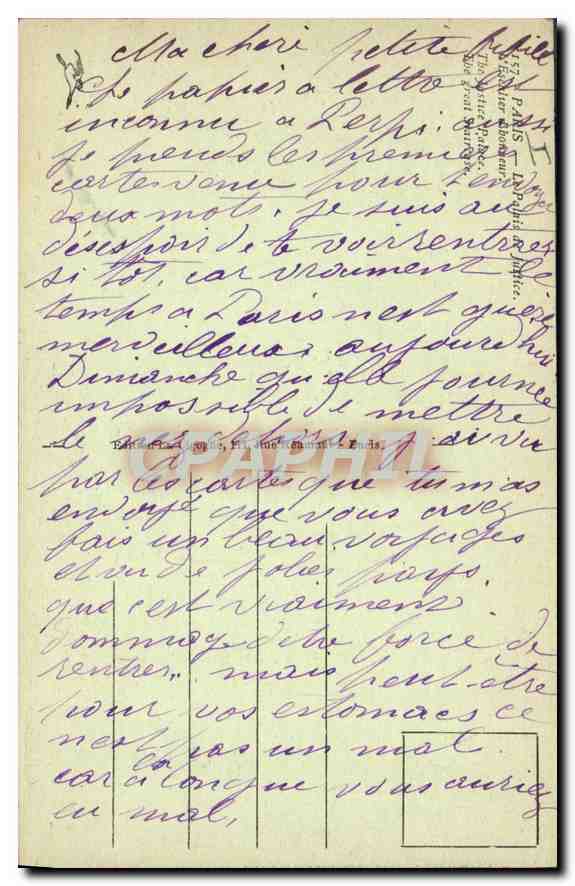 Ma cheri petite
Le papier a lettre est
inconnu a Perpi. aussi
je prends les premier
cartes venu pour t'envoye
deux mots. je suis au
désespoir de te voir rentrer
si tot, car vraiment le
temps a Paris n'est guere
merveilleux, aujourd'hui
Dimanche quelle journee
impossible de mettre
le nez dehors. j'ai vu
par les cartes que tu m'as
envoyé que vous avez
fais un beau voyages
et vu de jolies pays.
que c'est vraiment
dommage d'etre forcé de
rentrer. mais peut-être
pour vos estomacs ce
n'est pas un mal.
car a la longue vous auriez
eu mal.
157 PARIS - Le Palais de Justice.
L'Escalier d'honneur.
The Justice Palace.
The great Staircase.
I
Paris.
CPAPHIL